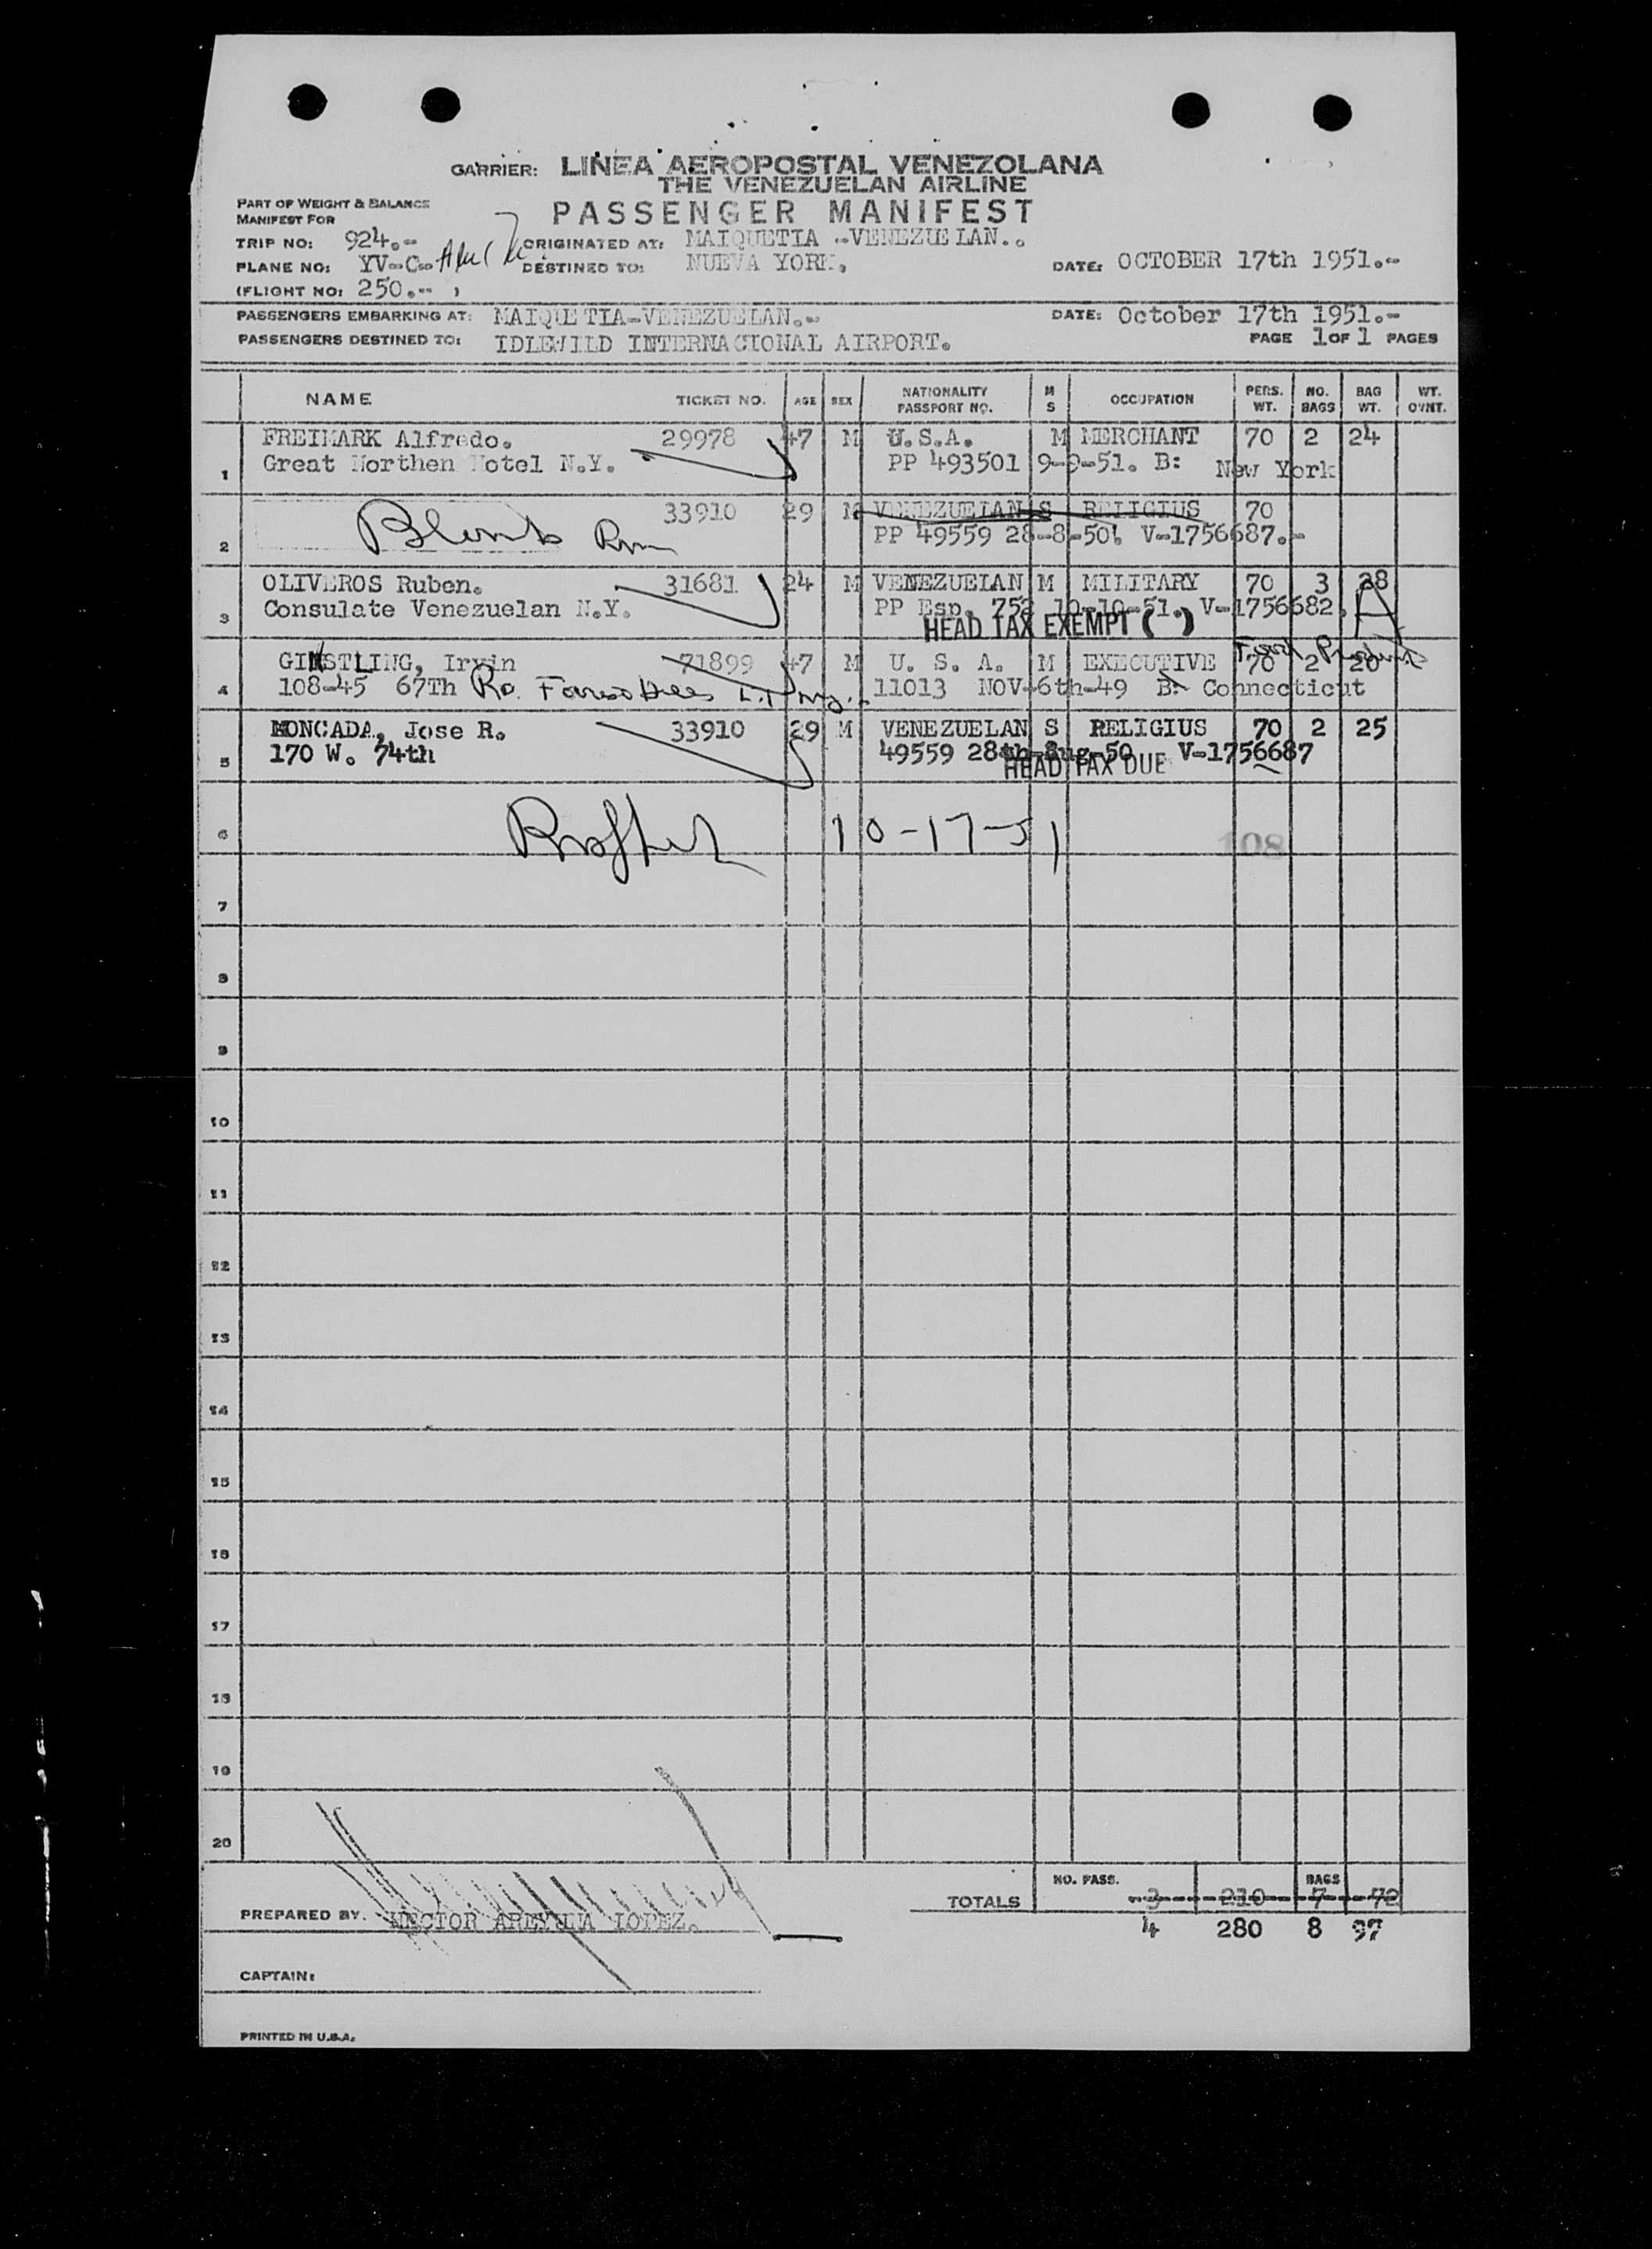 CARRIER: LINEA AEROPOSTAL VENEZOLANA
THE VENEZUELAN AIRLINE
PART OF WEIGHT & BALANCE
MANIFEST FOR
PASSENGER MANIFEST
TRIP NO: 924.-
ORIGINATED AT: MAIQUETIA -VENEZUELAN..
PLANE NO: YV-C-
DESTINED TO: NUEVA YORK.
DATE: OCTOBER 17th 1951.-
(FLIGHT NO: 250.-- )
PASSENGERS EMBARKING AT: MAIQUETIA-VENEZUELAN.-
DATE: October 17th 1951.-
PASSENGERS DESTINED TO: IDLEWILD INTERNACIONAL AIRPORT.
PAGE 1 OF 1 PAGES
NAME TICKET NO. AGE SEX NATIONALITY PASSPORT NO. M S OCCUPATION PERS. WT. NO. BAGS BAG WT. WT. OVNT.
1 FREIMARK Alfredo. 29978 47 M U.S.A. M MERCHANT 70 2 24
Great Northen Hotel N.Y. PP 493501 9-9-51. B: New York
2 33910 29 M VENEZUELAN S RELIGIUS 70
Blank PP 49559 28-8-50. V-1756687.-
3 OLIVEROS Ruben. 31681 24 M VENEZUELAN M MILITARY 70 3 28
Consulate Venezuelan N.Y. PP Esp. 752 10-10-51. V-1756682.
HEAD TAX EXEMPT ( )
4 GINSTLING, Irwin 71899 47 M U. S. A. M EXECUTIVE 70 2 20
108-45 67Th Rd. Forest Hills L.I. N.Y. 11013 NOV-6th-49 B: Connecticut
5 MONCADA, Jose R. 33910 29 M VENEZUELAN S RELIGIUS 70 2 25
170 W. 74th 49559 28th-Aug-50 V-1756687
HEAD TAX DUE
6 10-17-51
108
7
8
9
10
11
12
13
14
15
16
17
18
19
20
NO. PASS. BAGS
TOTALS -3---- -210-- -7- -72
PREPARED BY. LOPEZ.
4 280 8 97
CAPTAIN:
PRINTED IN U.S.A.